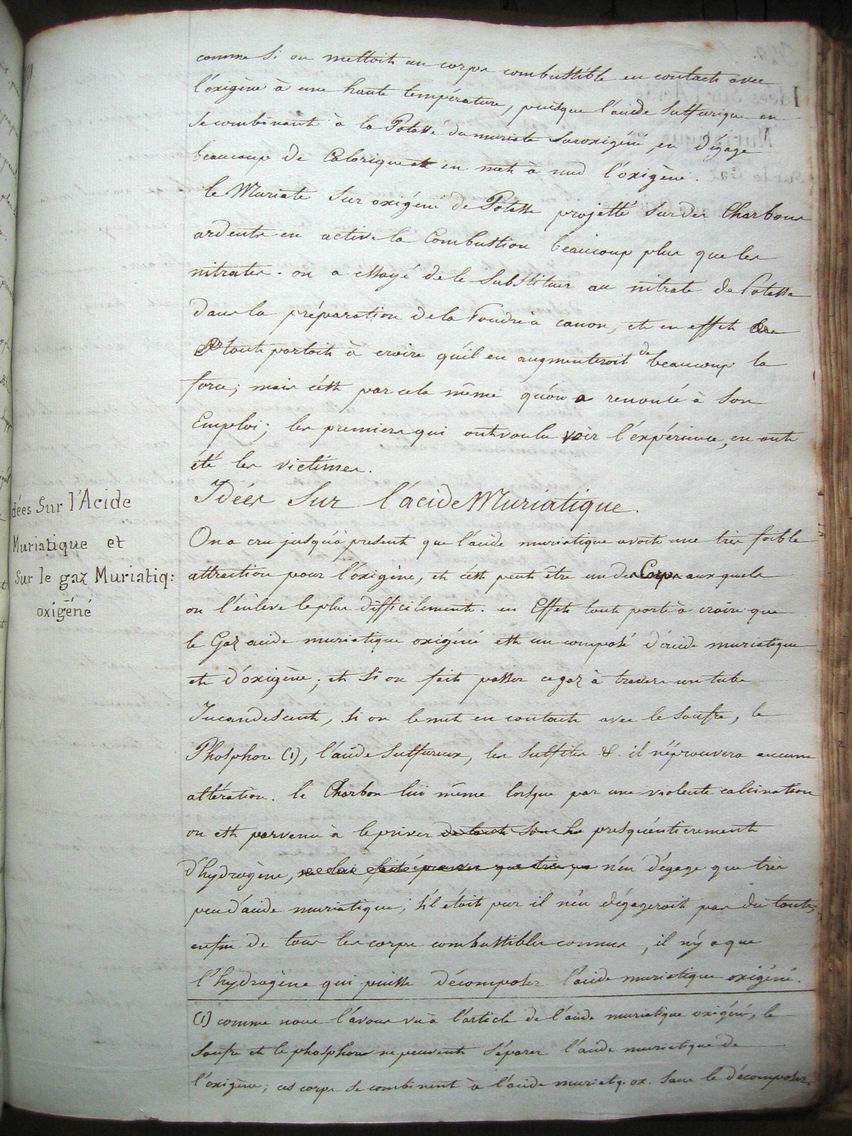 comme si on mettoit un corps combustible en contact avec
l'oxigène à une haute température, puisque l'acide sulfurique en
se combinant à la Potasse du muriate suroxigéné en dégage
beaucoup de Calorique et en met à nud l'oxigène.
le Muriate sur oxigéné de Potasse projetté sur des Charbons
ardents en active la Combustion beaucoup plus que les
nitrates. on a essayé de le substituer au nitrate de Potasse
dans la préparation de la Poudre a canon, et en effet
tout portoit à croire qu'il en augmenteroit de beaucoup la
force; mais c'est par cela même qu'on a renoncé à son
Emploi; les premiers qui ont voulu voir l'expérience, en ont
été les victimes.
Idées Sur l'acide Muriatique.
Idées Sur l'Acide
Muriatique et
Sur le gaz Muriatiq:
oxigéné
On a cru jusqu'à présent que l'acide muriatique avoit une très foible
attraction pour l'oxigène, et c'est peut être un des Corps auxquels
on l'enlève le plus difficilement. en Effet tout porte à croire que
le Gaz acide muriatique oxigéné est un composé d'acide muriatique
et d'oxigène; et si on fait passer ce gaz à travers un tube
Incandescent, si on le met en contact avec le soufre, le
Phosphore (1), l'acide sulfureux, les sulfites & il n'éprouvera aucune
altération. le Charbon lui même lorsque par une violente calcination
on est parvenu à le priver de toute son h presqu'entierement
d'hydrogène, n'en dégage que très
peu d'acide muriatique; s'il étoit pur il n'en dégageroit pas du tout,
enfin de tous les corps combustibles connus, il n'y a que
l'hydrogène qui puisse décomposer l'acide muriatique oxigéné.
(1) comme nous l'avons vu à l'article de l'acide muriatique oxigéné, le
soufre et le phosphore ne peuvent séparer l'acide muriatique de
l'oxigène; ces corps se combinent à l'acide muriatq. ox. sans le décomposer.